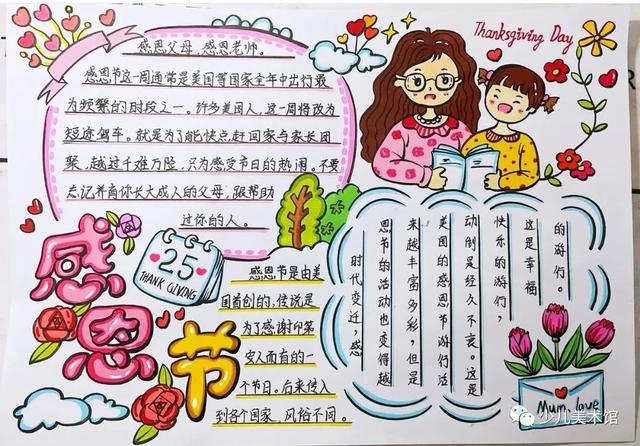 感恩父母，感恩老师。
感恩节这一周通常是美国等国家全年中出行最
为频繁的时段之一。许多美国人，这一周将改为
短途驾车。就是为了能快点赶回家与家长团
聚，越过千难万险，只为感受节日的热闹。不要
忘记养育你长大成人的父母，跟帮助
过你的人。
Thanksgiving Day
25
THANK GIVING
感恩节
感恩节是由美
国首创的，传说是
为了感谢印第
安人而有的一
个节日。后来传入
到各个国家，风俗不同。
时代变迁，感
恩节的活动也变得越
来越丰富多彩，但是
美国的感恩节游行活
动倒是经久不衰。这是
快乐的游行，
这是幸福
的游行。
Mum, love
少儿美术馆